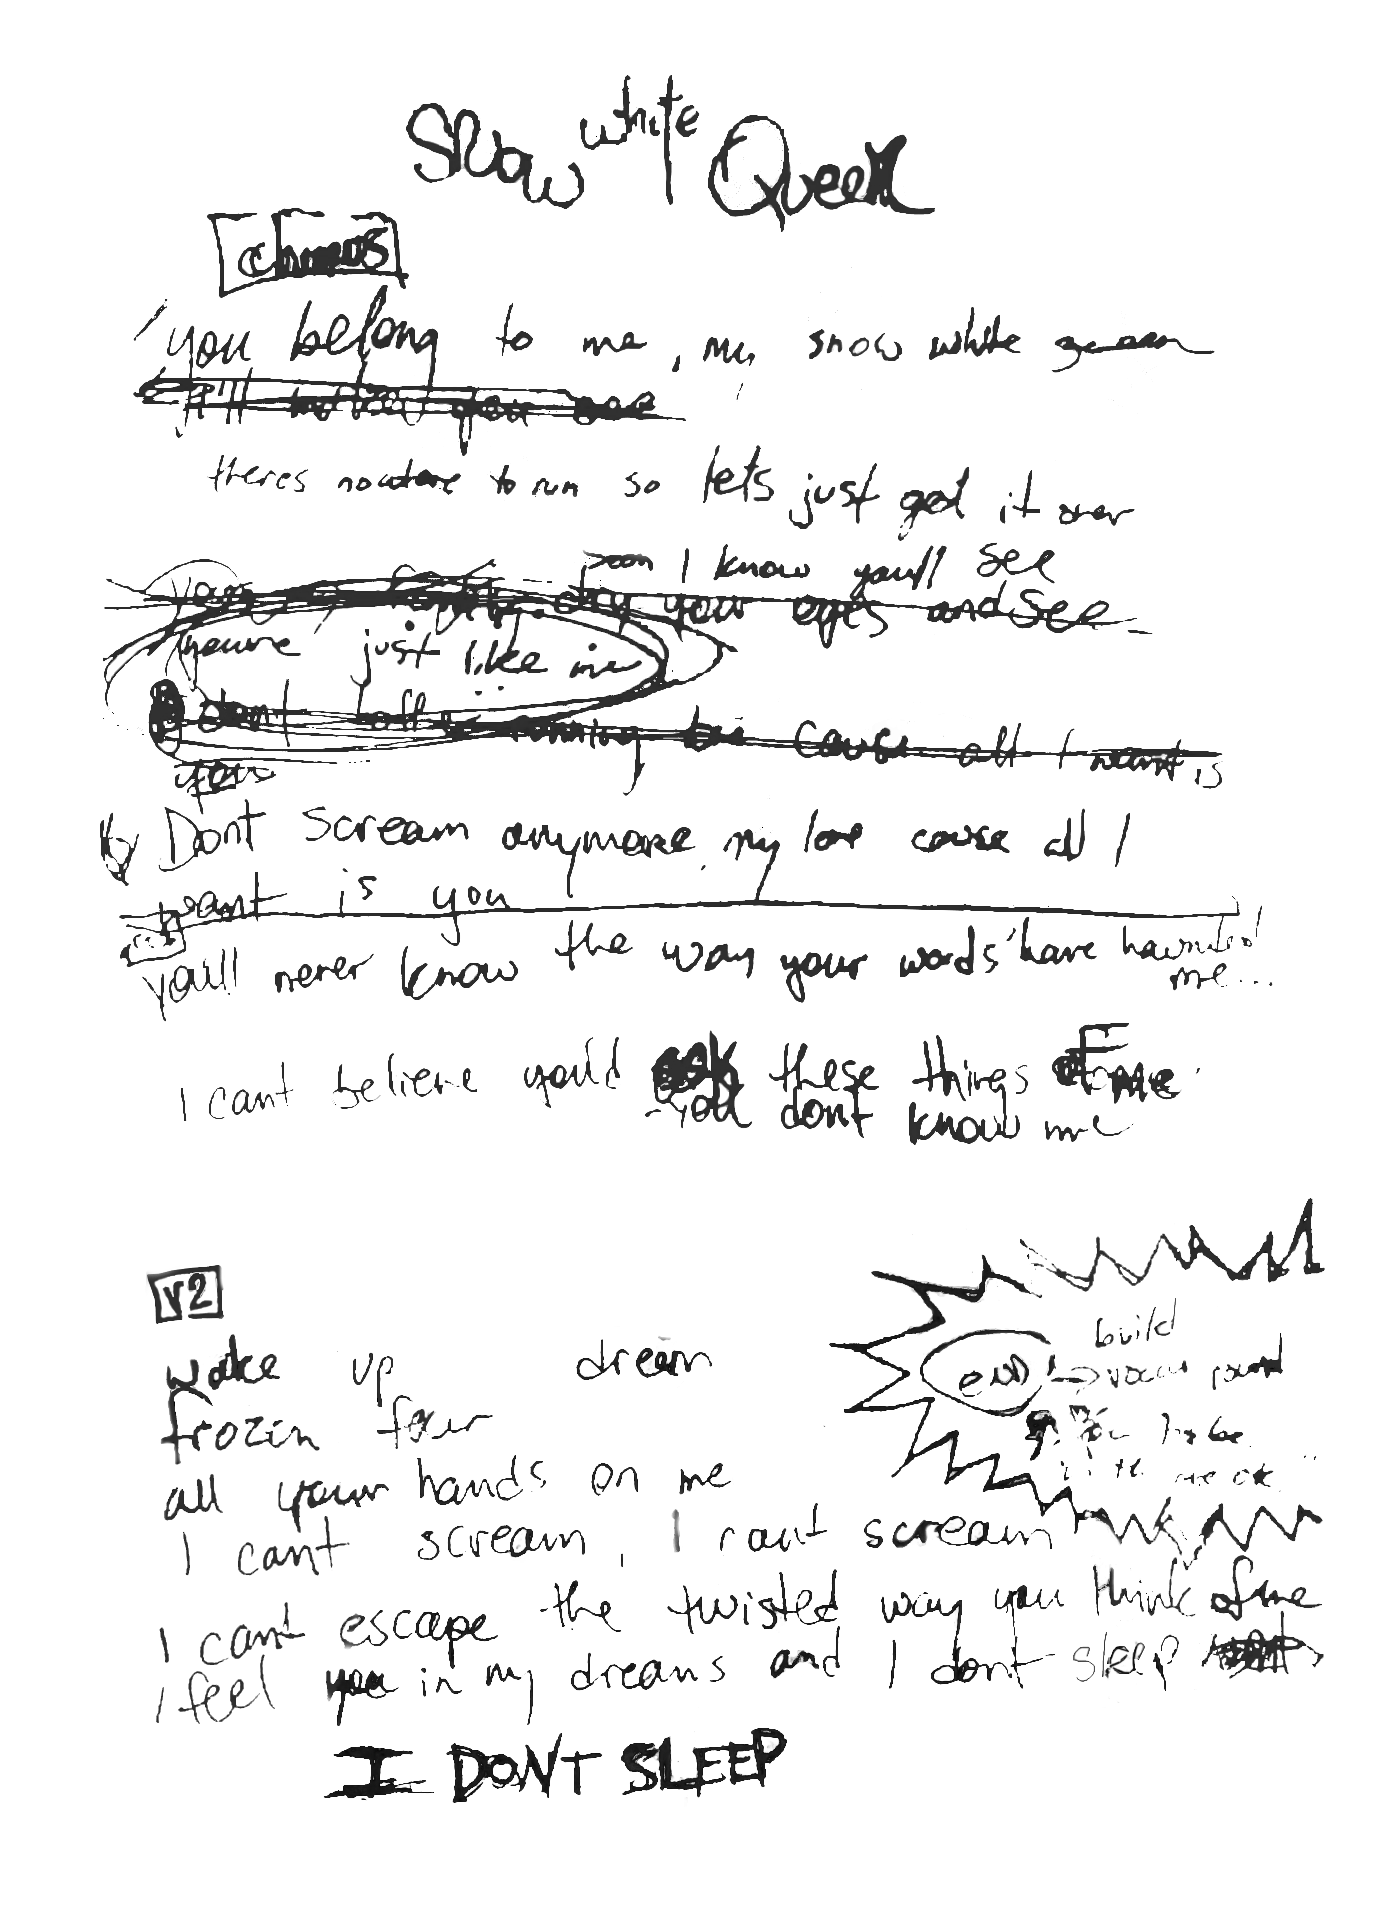 Snow white Queen
chorus
you belong to me, my snow white queen
I'll you see
theres nowhere to run so lets just get it over
soon I know youll see
dry your eyes and see
youre just like me
dont running cause all I want is
you
Dont scream anymore my love cause all I
want is you
youll never know the way your words have haunted
me...
I cant believe youd ask these things of me
you dont know me
V2
wake up dream
frozen fear
all your hands on me
I cant scream, I cant scream
I cant escape the twisted way you think of me
I feel you in my dreams and I dont sleep
I DONT SLEEP
build
end